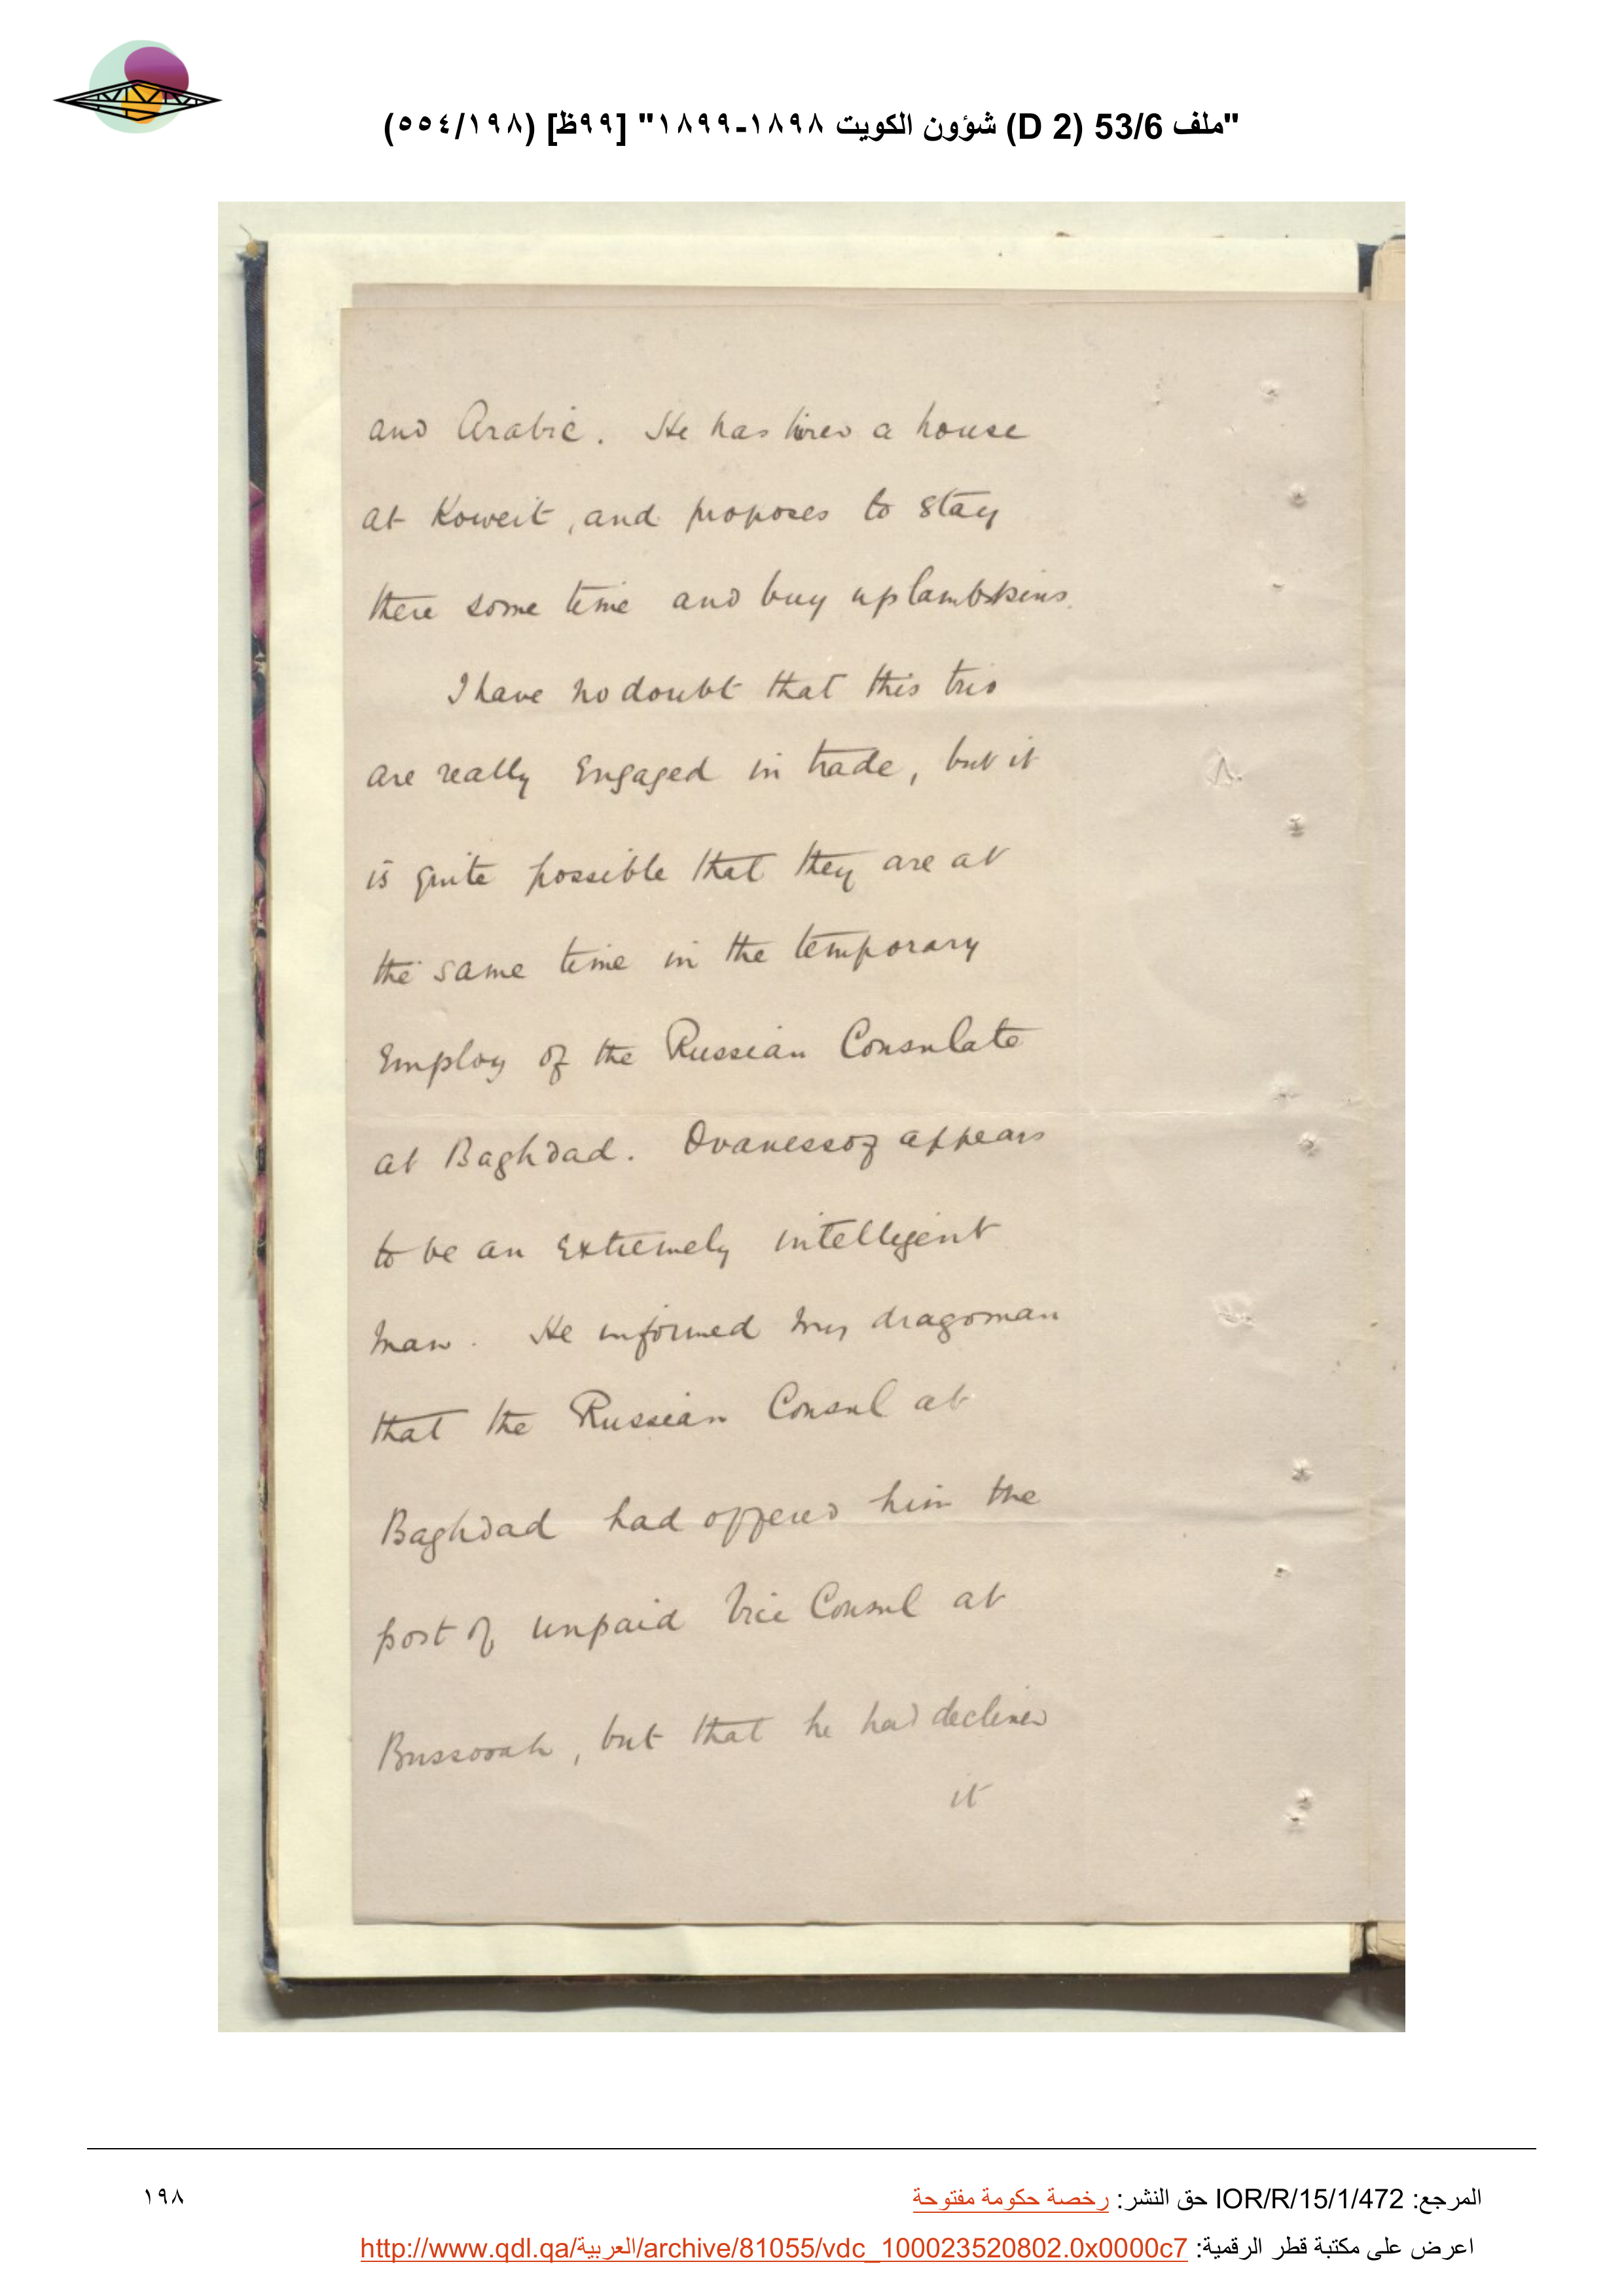 "ملف 53/6 (D 2) شؤون الكويت ١٨٩٨-١٨٩٩" [٩٩ظ] (٥٥٤/١٩٨)
and Arabic. He has hired a house
at Koweit, and proposes to stay
there some time and buy up lambskins.
I have no doubt that this trio
are really engaged in trade, but it
is quite possible that they are at
the same time in the temporary
employ of the Russian Consulate
at Baghdad. Ovanessof appears
to be an extremely intelligent
man. He informed my dragoman
that the Russian Consul at
Baghdad had offered him the
post of unpaid Vice Consul at
Bussorah, but that he had declined
it
المرجع: IOR/R/15/1/472 حق النشر: رخصة حكومة مفتوحة
١٩٨
اعرض على مكتبة قطر الرقمية: http://www.qdl.qa/العربية/archive/81055/vdc_100023520802.0x0000c7